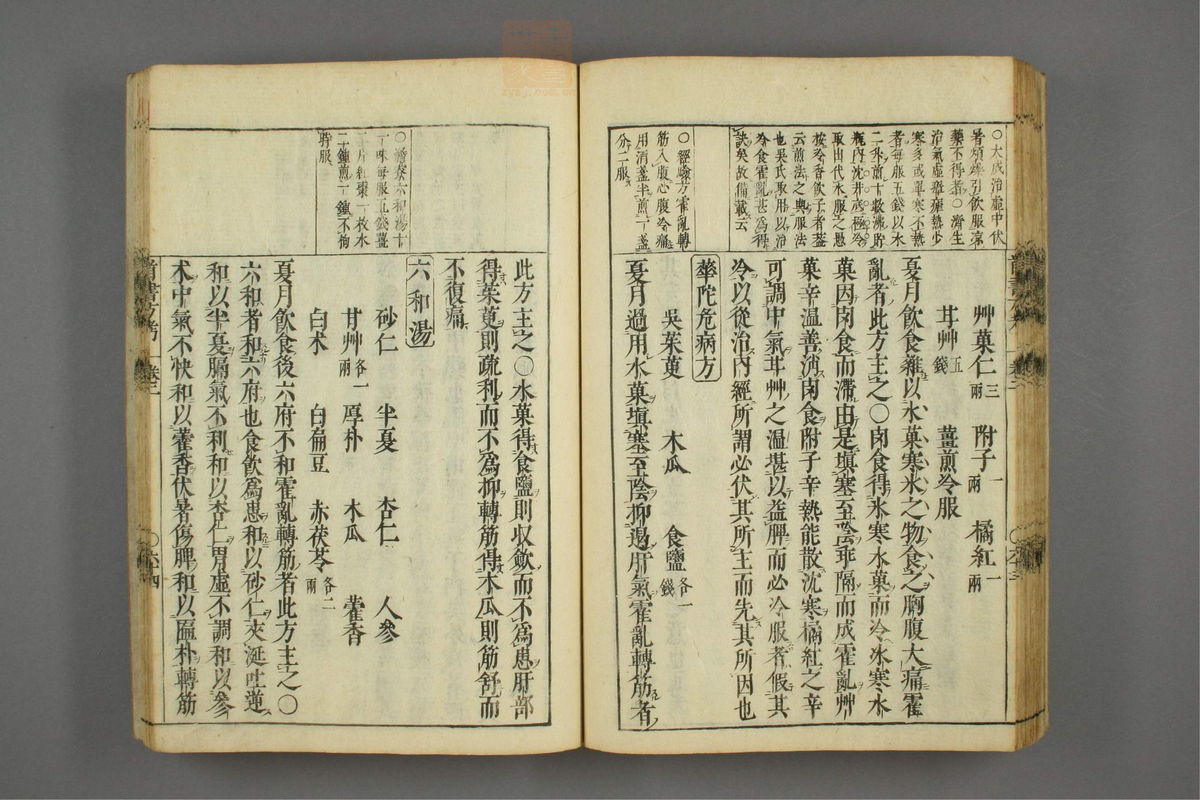 ○大成治虛中伏
暑煩燥引飲服涼
藥不得者○濟生
治氣虛瘴瘧熱少
寒多或單寒不熱
者每服五錢以水
二升煎十數沸貯
瓶內沈井底極冷
取出代水服之愚
按冷香飲子者蓋
云煎法之與服法
也吳氏取用以治
冷食霍亂甚為得
訣矣故備載云
○經驗方霍亂轉
筋入腹心腹冷痛
用酒盞半煎一盞
分二服
艸菓仁三兩 附子一兩 橘紅一兩
甘艸五錢 薑煎冷服
夏月飲食雜以水菓寒氷之物食之胸腹大痛霍
亂者此方主之○肉食得氷寒水菓而冷氷寒水
菓因肉食而滯由是塡塞至陰乖隔而成霍亂艸
菓辛溫善消肉食附子辛熱能散沈寒橘紅之辛
可調中氣甘艸之溫堪以益脾而必冷服者假其
冷以從治內經所謂必伏其所主而先其所因也
華陀危病方
吳茱萸 木瓜 食鹽各一錢
夏月過用水菓塡塞至陰抑遏肝氣霍亂轉筋者
○澹寮六和湯十
一味每服五錢薑
三片紅棗一枚水
二鐘煎一鐘不拘
時服
此方主之○水菓得食鹽則收斂而不為患肝部
得茱萸則疏利而不為抑轉筋得木瓜則筋舒而
不復痛
六和湯
砂仁 半夏 杏仁 人參
甘艸各一兩 厚朴 木瓜 藿香
白术 白扁豆 赤茯苓各二兩
夏月飲食後六府不和霍亂轉筋者此方主之○
六和者和六府也食飲為患和以砂仁夾涎吐逆
和以半夏膈氣不利和以杏仁胃虛不調和以參
术中氣不快和以藿香伏暑傷脾和以匾朴轉筋
醫書方考 卷二 ○六十四